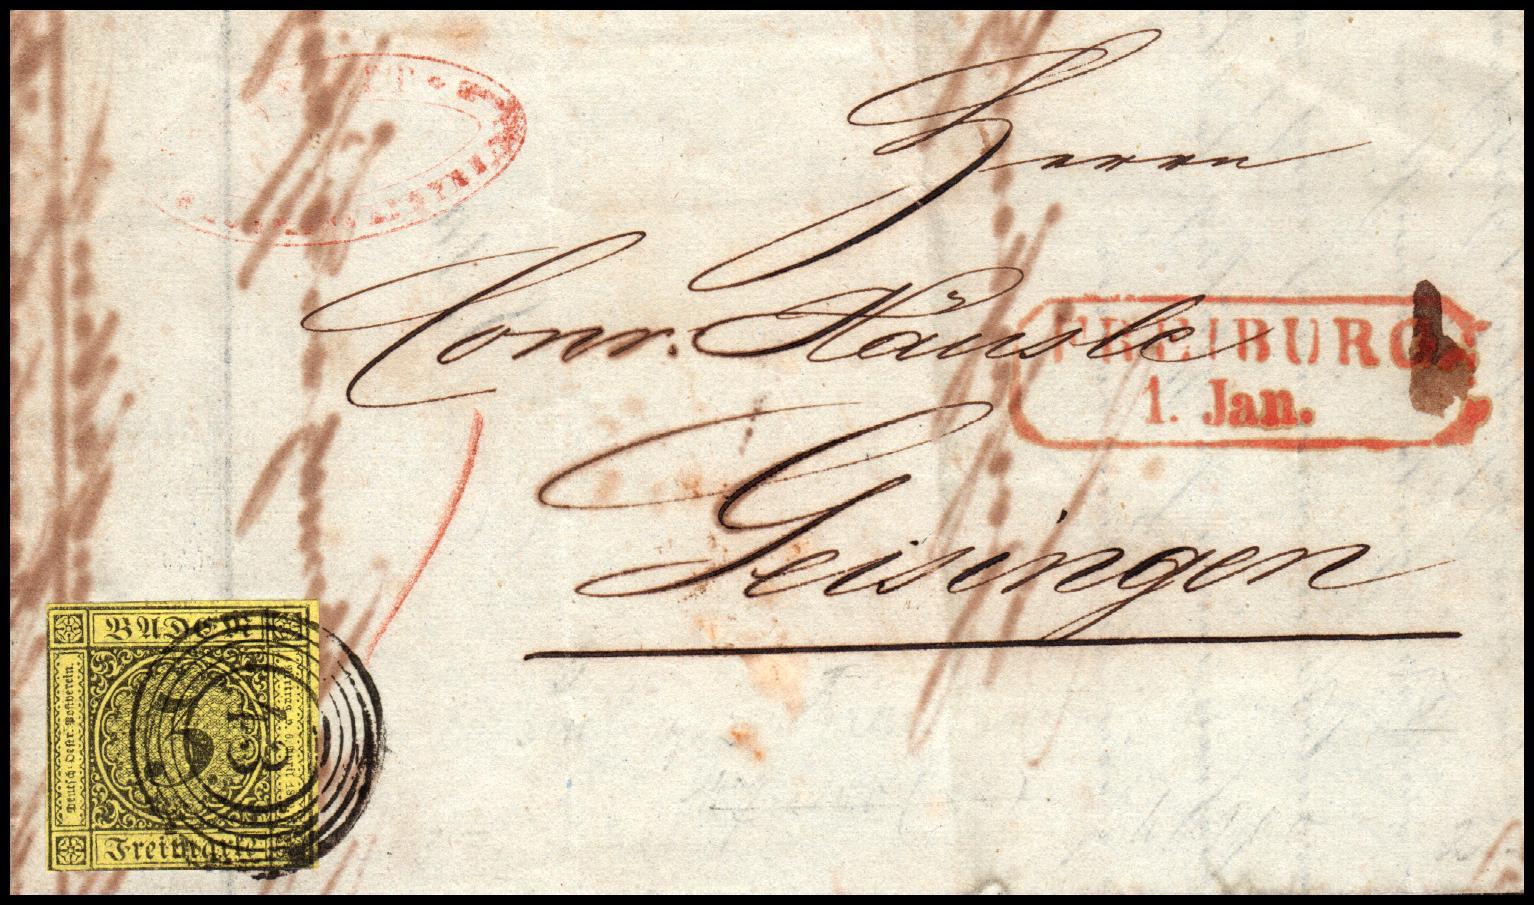 Herrn
Conr. Häusle
FREIBURG
1. Jan.
Geisingen
BADEN
Deutsch-Oestr. Postverein.
3
43
Freimarke